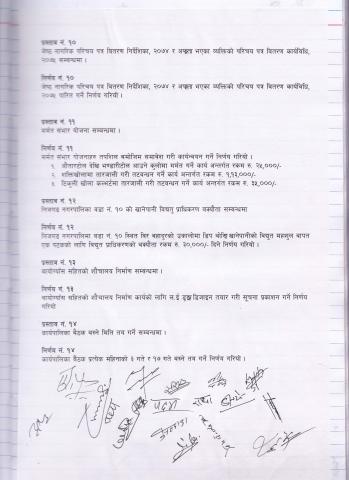 प्रस्ताव नं. १०
जेष्ठ नागरिक परिचय पत्र वितरण निर्देशिका, २०७४ र अपाङ्गता भएका व्यक्तिको परिचय पत्र वितरण कार्यविधि,
२०७५ सम्बन्धमा ।
निर्णय नं. १०
जेष्ठ नागरिक परिचय पत्र वितरण निर्देशिका, २०७४ र अपाङ्गता भएका व्यक्तिको परिचय पत्र वितरण कार्यविधि,
२०७५ पारित गर्ने निर्णय गरियो ।
प्रस्ताव नं. ११
मर्मत संभार योजना सम्बन्धमा ।
निर्णय नं. ११
मर्मत संभार योजनाहरु तपशिल बमोजिम समावेश गरी कार्यन्वयन गर्ने निर्णय गरियो ।
१. जीतारटोल देखि भण्डारीटोल आउने कुलोमा मर्मत कार्य अन्तर्गत रकम रु. २५,०००/-
२. शक्तिखोलामा तारजाली गरी तटवन्धन गर्ने कार्य अन्तर्गत रकम रु. १,१२,०००/-
३. टिकुली खोला कल्भर्टमा तारजाली गरी तटवन्धन गर्ने कार्य अन्तर्गत रकम रु. ३५,०००/-
प्रस्ताव नं. १२
निजगढ नगरपालिका वडा नं. १० को खानेपानी विद्युत् प्राधिकरण वक्यौता सम्वन्धमा
निर्णय नं. १२
निजगढ नगरपालिका वडा नं. १० स्थित विर बहादुरको उकालोमा डिप बोरिङ्ग खानेपानीको विद्युत महशुल बापत
एक पटकको लागि विद्युत प्राधिकरणको वक्यौता रकम रु. ३०,०००/- दिने निर्णय गरियो ।
प्रस्ताव नं. १३
वायोग्याँस सहितको शौचालय निर्माण सम्वन्धमा ।
निर्णय नं. १३
वायोग्याँस सहितको शौचालय निर्माण कार्यको लागि ल.ई ड्रइङ डिजाइन तयार गरी सूचना प्रकाशन गर्ने निर्णय
गरियो
प्रस्ताव नं. १४
कार्यपालिका बैठक बस्ने मिति तय गर्ने सम्वन्धमा ।
निर्णय नं. १४
कार्यपालिका बैठक प्रत्येक महिनाको ३ गते र १७ गते बस्ने तय गर्ने निर्णय गरियो ।